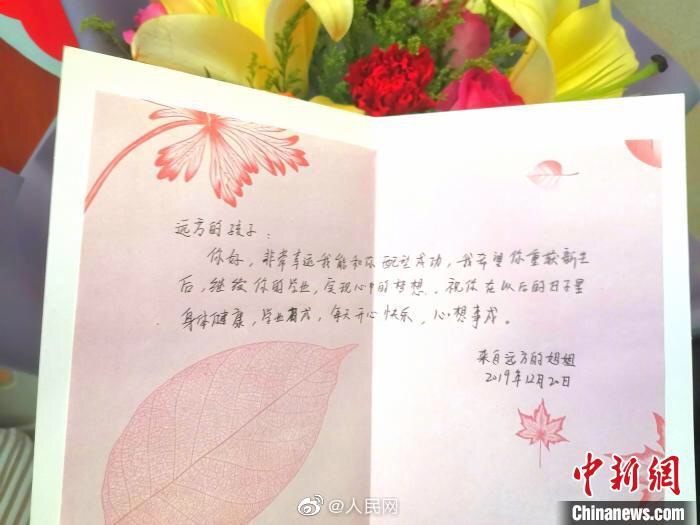 远方的孩子：
你好，非常幸运我能和你配型成功，我希望你重获新生
后，继续你的学业，实现心中的梦想，祝你在以后的日子里
身体健康，学业有成，每天开心快乐，心想事成。
来自远方的姐姐
2019年12月20日
@人民网
中新网
Chinanews.com